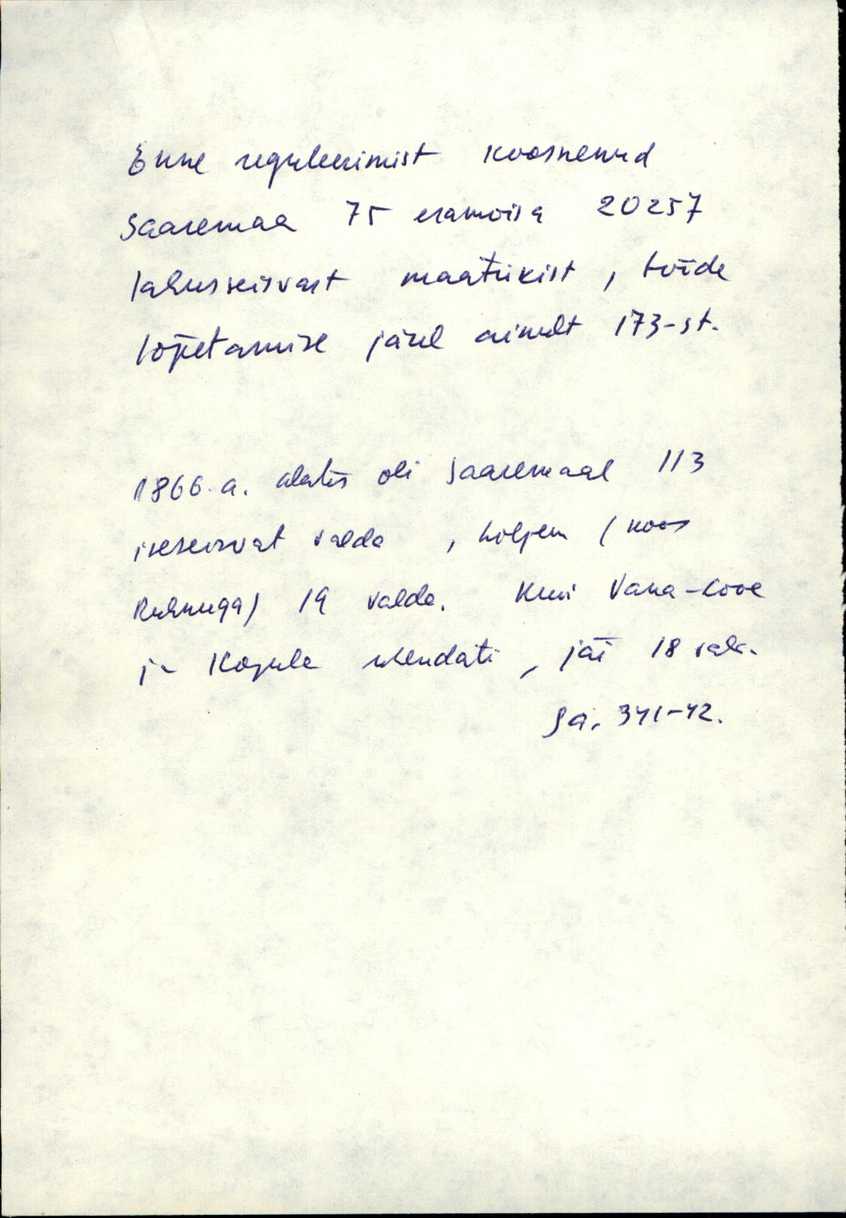 Enne reguleerimist koosnenud
Saaremaa 75 eramõisa 20257
lahusseisvast maatükist, tööde
lõpetamise järel ainult 173-st.
1866.a. alates oli Saaremaal 113
iseseisvat valda, hiljem (koos
Ruhnuga) 19 valda. Kui Vana-Lõve
ja Kogula ühendati, jäi 18 valda.
Sa, 341-42.